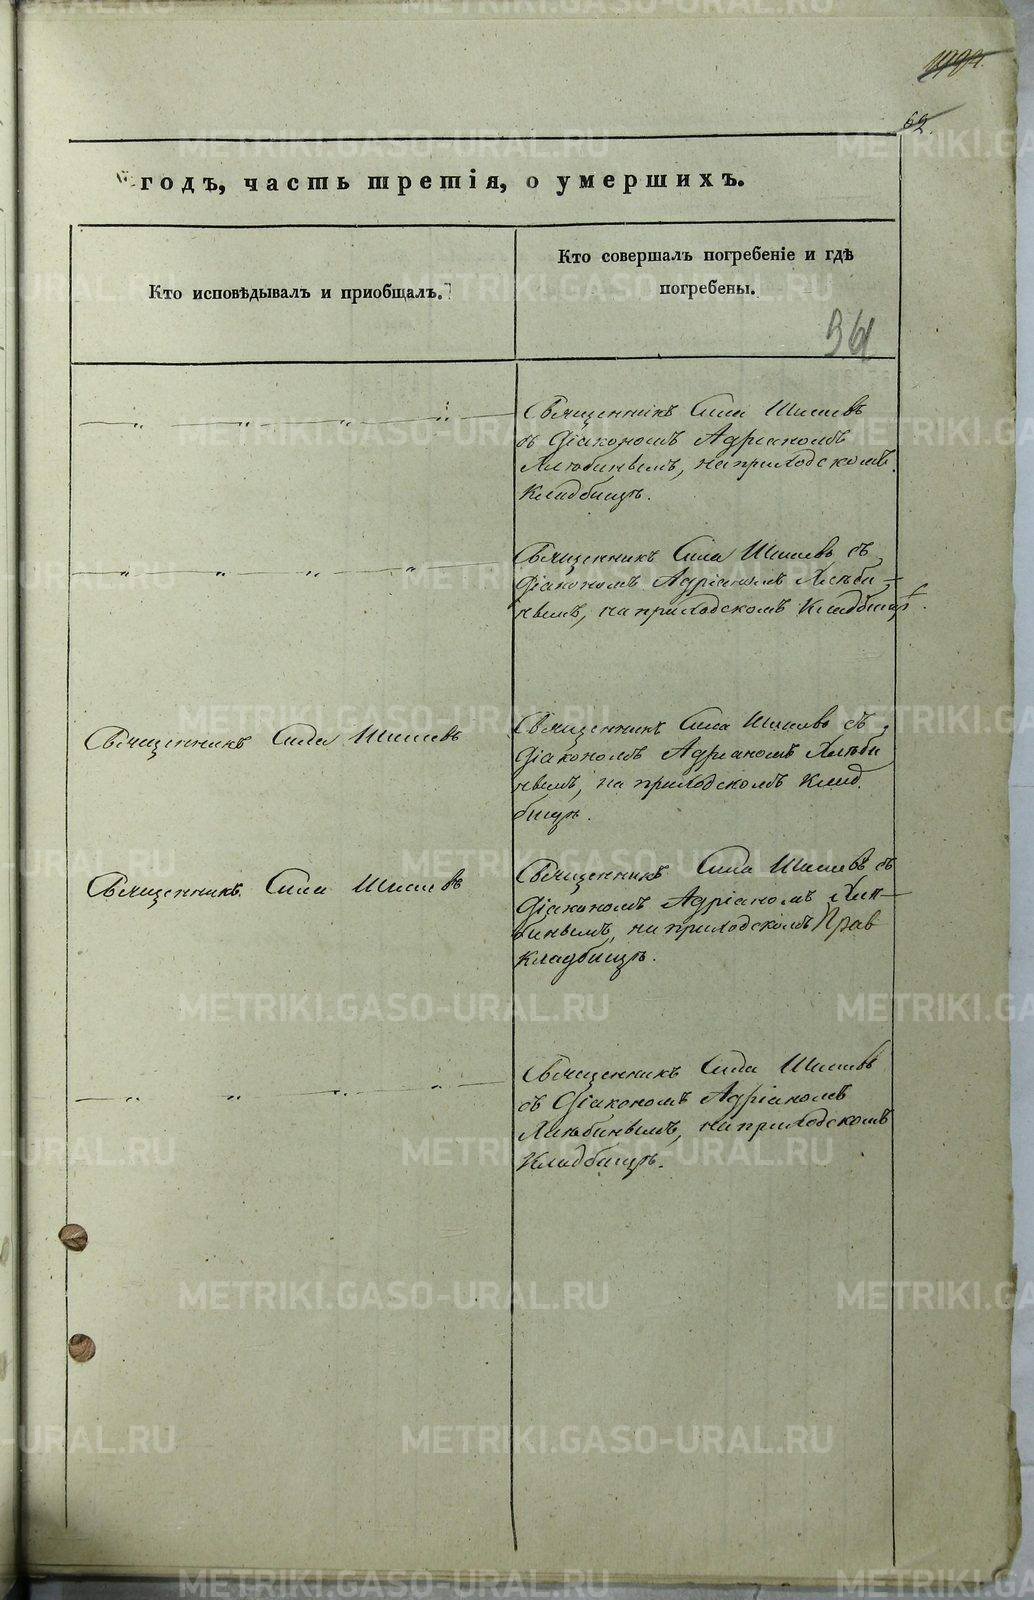 62.
годъ, часть третія, о умершихъ.
Кто исповѣдывалъ и приобщалъ.
Кто совершалъ погребеніе и гдѣ
погребены.
Священникъ Сила Шишевъ
съ Діакономъ Адріаномъ
Хлѣбинымъ, на приходскомъ
Кладбищѣ.
Священникъ Сила Шишевъ съ
Діакономъ Адріаномъ Хлѣби-
нымъ, на приходскомъ Кладбищѣ.
Священникъ Сила Шишевъ
Священникъ Сила Шишевъ съ
Діакономъ Адріаномъ Хлѣби
нымъ, на приходскомъ Клад
бищѣ.
Священникъ Сила Шишевъ
Священникъ Сила Шишевъ съ
Діакономъ Адріаномъ Хлѣ-
бинымъ, на приходскомъ Прав
Кладбищѣ.
Священникъ Сила Шишевъ
съ Діакономъ Адріаномъ
Хлѣбинымъ, на приходскомъ
Кладбищѣ.
METRIKI.GASO-URAL.RU